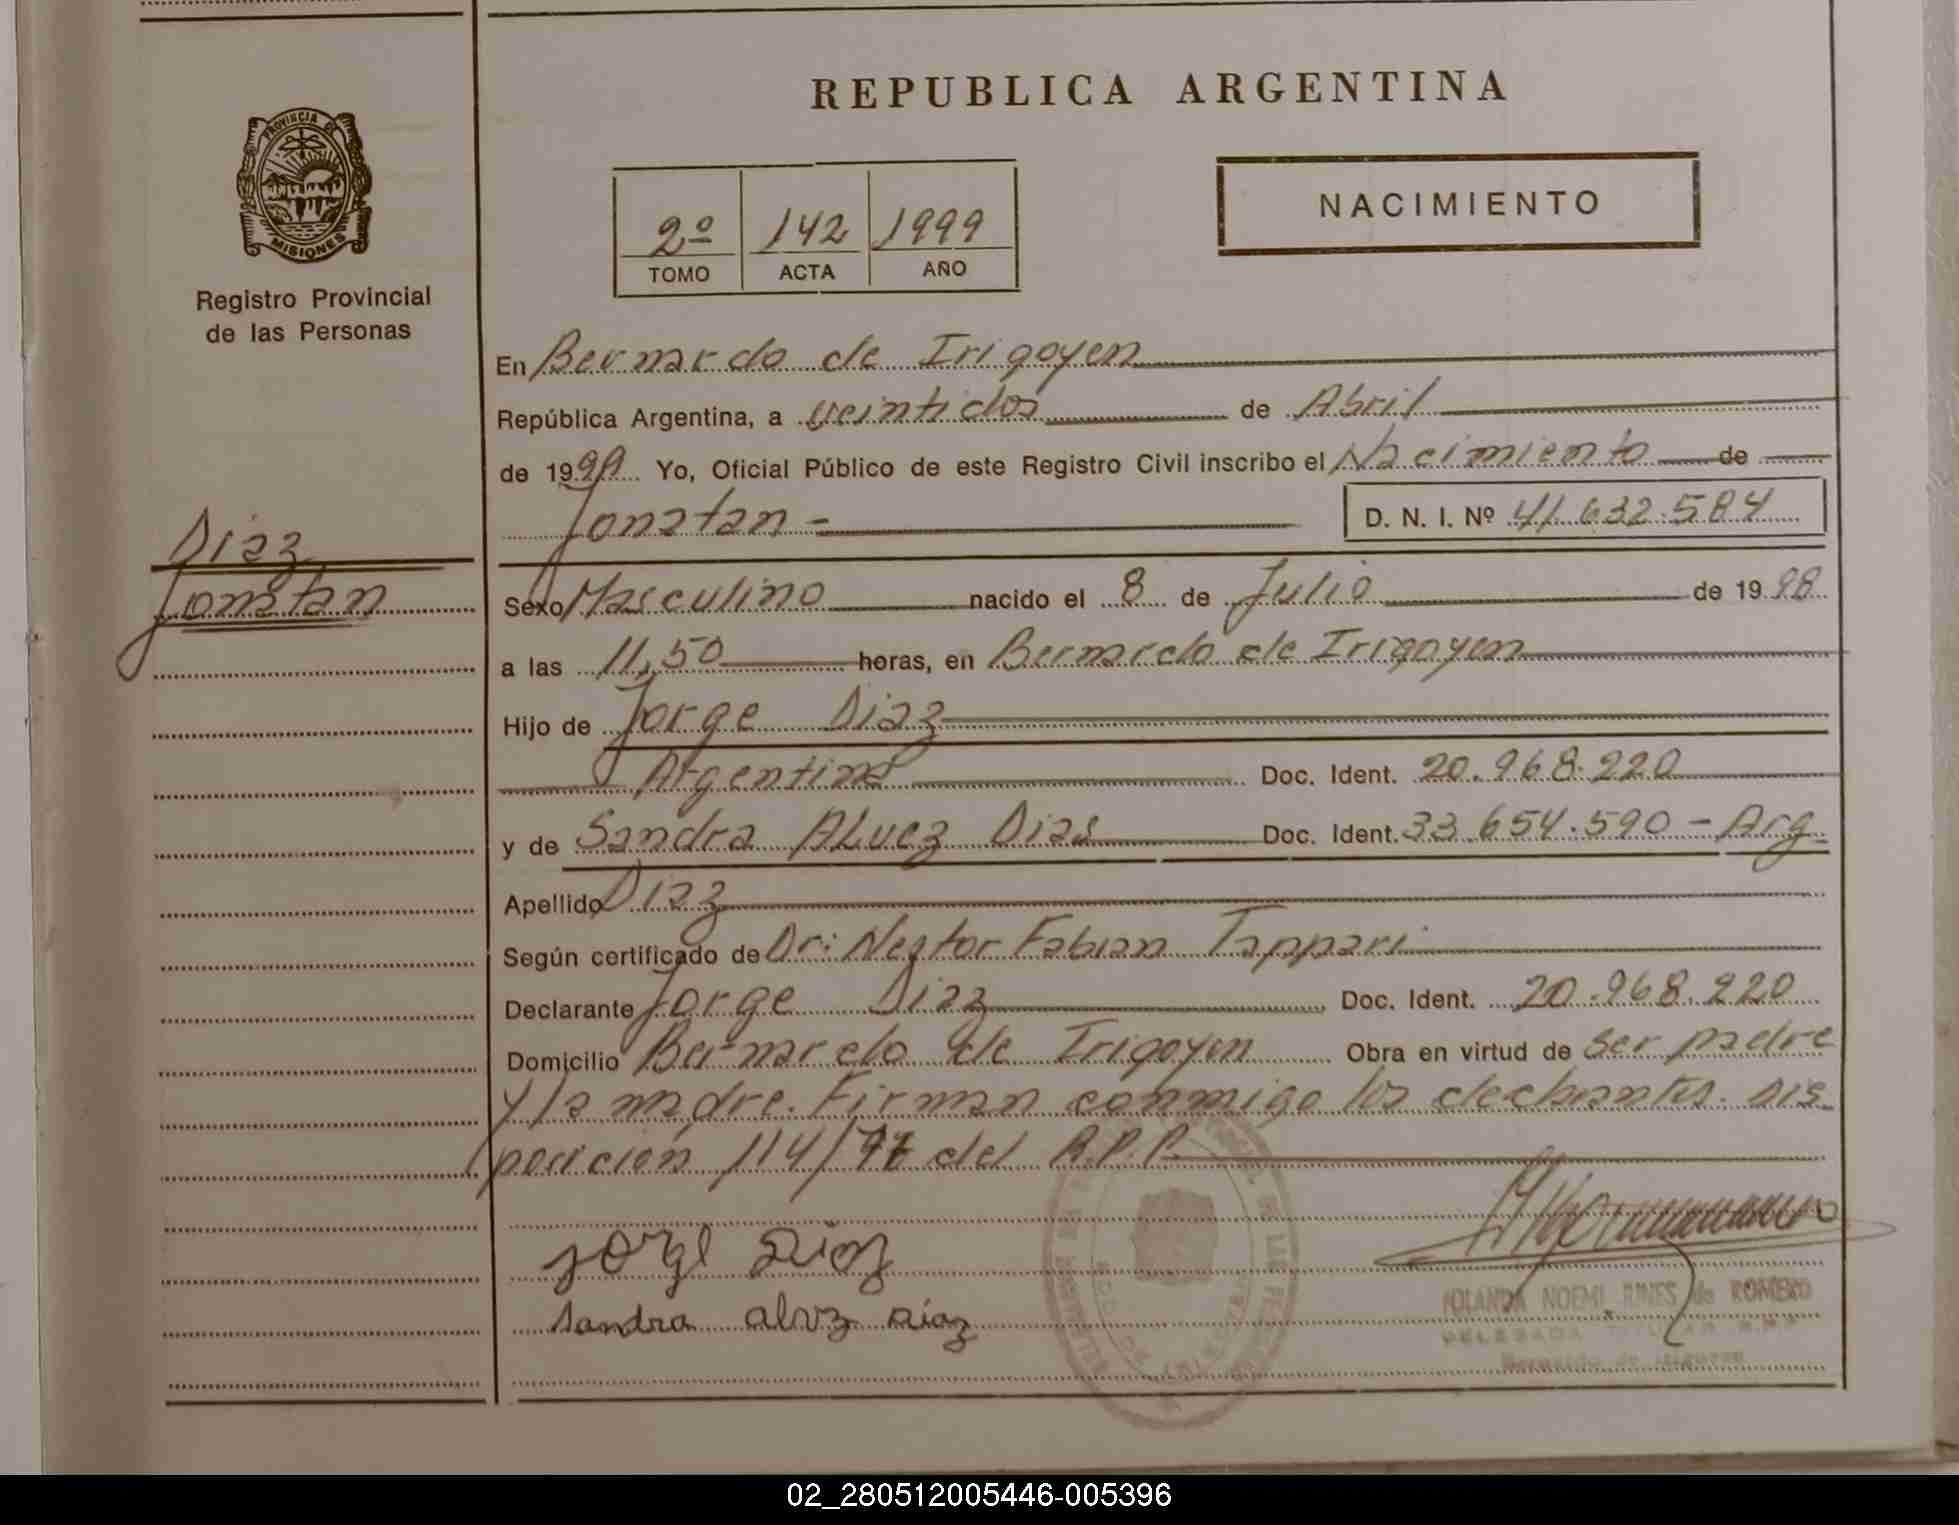 REPUBLICA ARGENTINA
PROVINCIA DE
MISIONES
Registro Provincial
de las Personas
2º 142 1999
TOMO ACTA AÑO
NACIMIENTO
En Bernardo de Irigoyen
República Argentina, a veintidos de Abril
de 1999 Yo, Oficial Público de este Registro Civil inscribo el Nacimiento de
Jonatan - D. N. I. Nº 41.632.584
Diaz
Jonatan
Sexo Masculino nacido el 8 de Julio de 1998
a las 11,50 horas, en Bernardo de Irigoyen
Hijo de Jorge Diaz
Argentina Doc. Ident. 20.968.220
y de Sandra ALvez Dias Doc. Ident. 33.654.590 - Arg.
Apellido Diaz
Según certificado de Dr: Nestor Fabian Tappari
Declarante Jorge Diaz Doc. Ident. 20.968.220
Domicilio Bernardo de Irigoyen Obra en virtud de ser padre
y la madre. Firman conmigo los declarantes. Dis
posicion 114/ del R.P.P.
Jorge Diaz
Sandra alvz Diaz
YOLANDA NOEMI de ROMERO
DELEGADA TITULAR R.P.P.
Bernardo de Irigoyen
02_280512005446-005396